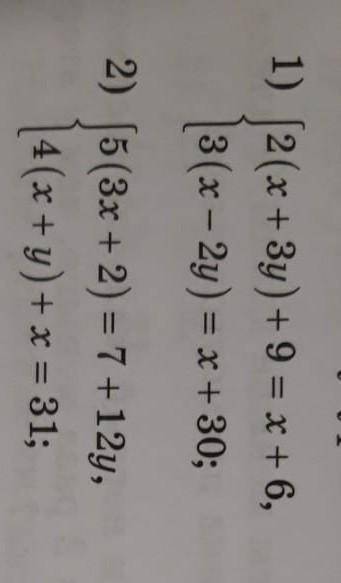 1) { 2(x + 3y) + 9 = x + 6,
3(x − 2y) = x + 30;
2) { 5(3x + 2) = 7 + 12y,
4(x + y) + x = 31;